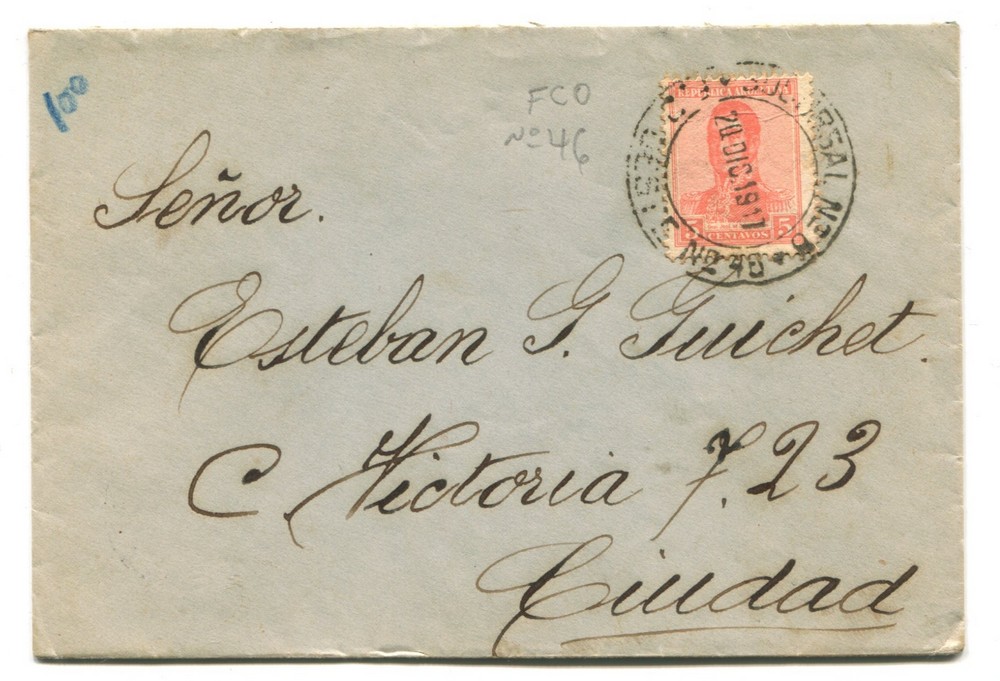 10º
FCO
Nº 46
REPUBLICA ARGENTINA
5 CENTAVOS 5
SUCURSAL Nº 9
20 DIC 1917
Señor.
Esteban G. Guichet.
C. Victoria 723
Ciudad